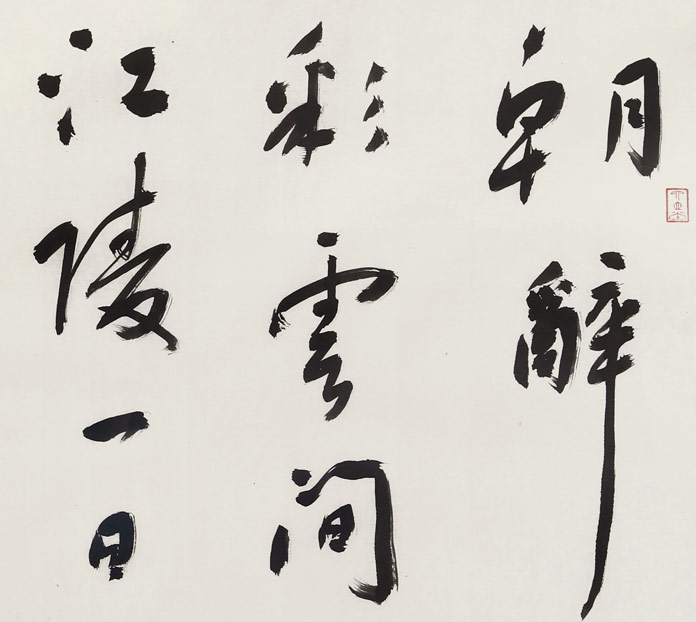 朝辭
彩雲間
江陵一日